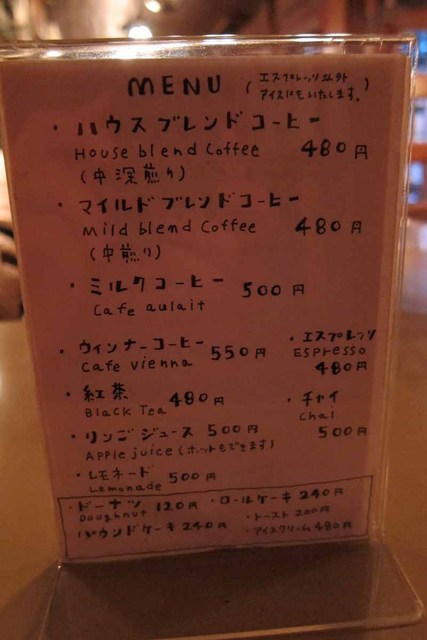 MENU (エスプレッソ以外
アイスにもいたします。)
・ハウスブレンドコーヒー
House blend Coffee 480円
(中深煎り)
・マイルドブレンドコーヒー
Mild blend Coffee 480円
(中煎り)
・ミルクコーヒー 500円
Cafe aulait
・ウィンナーコーヒー 550円
Cafe vienna
・エスプレッソ
Espresso
480円
・紅茶 480円
Black Tea
・チャイ
Chai
500円
・リンゴジュース 500円
Apple juice (ホットもできます)
・レモネード 500円
Lemonade
・ドーナツ 120円 ・ロールケーキ 240円
Doughnut ・トースト 200円
パウンドケーキ 240円 ・アイスクリーム 480円